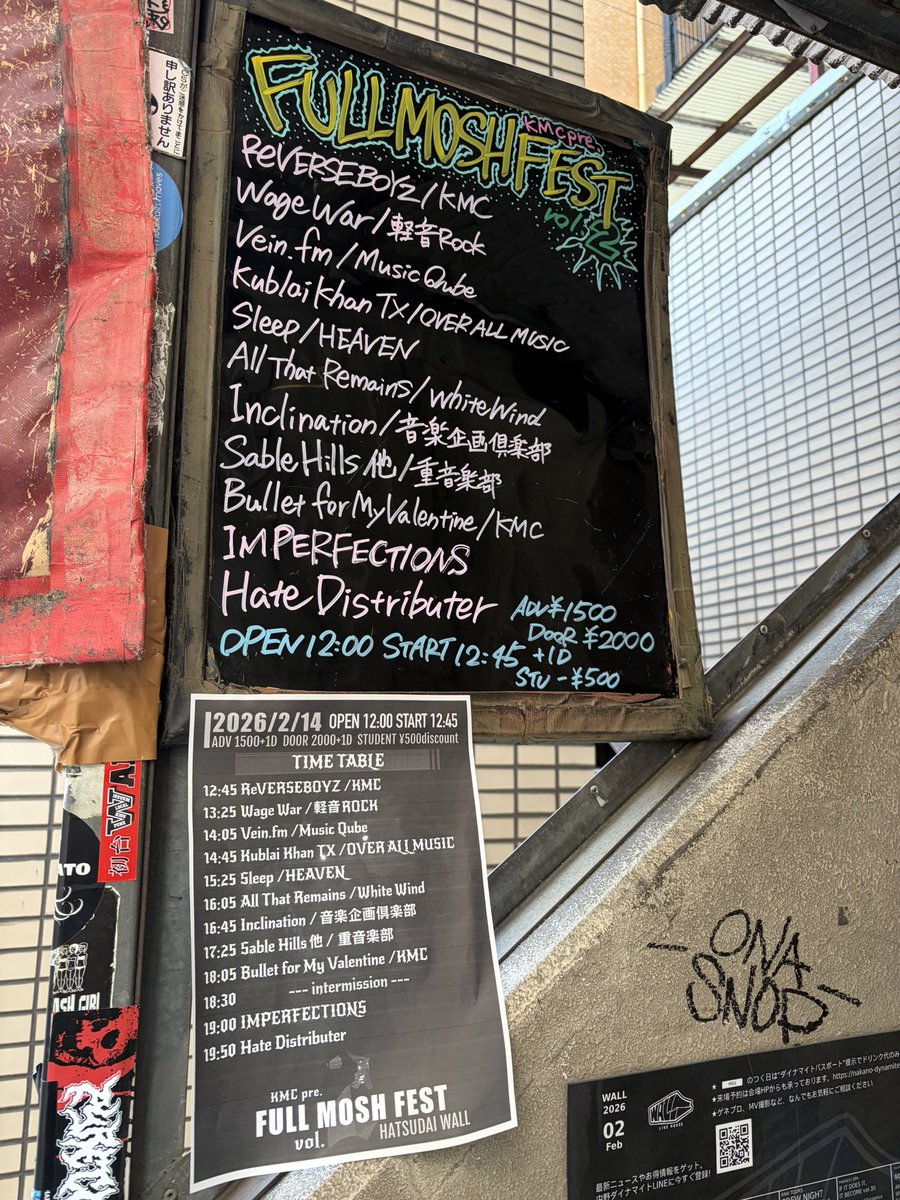 申し訳ありません
FULLMOSHFEST
KMC pre.
vol.2
ReVERSEBOYZ/KMC
Wage War/軽音Rock
Vein.fm/Music Qube
Kublai Khan TX/OVER ALL MUSIC
Sleep/HEAVEN
All That Remains/whiteWind
Inclination/音楽企画倶楽部
Sable Hills 他/重音楽部
Bullet for My Valentine/KMC
IMPERFECTIONS
Hate Distributer
ADV ¥1500
DooR ¥2000
+1D
STU -¥500
OPEN 12:00 START 12:45
2026/2/14 OPEN 12:00 START 12:45
ADV 1500+1D DOOR 2000+1D STUDENT ¥500discount
TIME TABLE
12:45 ReVERSEBOYZ /KMC
13:25 Wage War / 軽音ROCK
14:05 Vein.fm /Music Qube
14:45 Kublai Khan TX /OVER ALL MUSIC
15:25 Sleep /HEAVEN
16:05 All That Remains /White Wind
16:45 Inclination / 音楽企画倶楽部
17:25 Sable Hills 他 / 重音楽部
18:05 Bullet for My Valentine /KMC
18:30 --- intermission ---
19:00 IMPERFECTIONS
19:50 Hate Distributer
KMC pre.
FULL MOSH FEST
vol.
HATSUDAI WALL
ATO
ASH GIRL
- ONA
SNOP -
WALL
2026
02
Feb
WALL
LIVE HOUSE
★ PASS のつく日は"ダイナマイトパスポート"提示でドリンク代のみ
★来場予約は会場HPからも承っております。https://nakano-dynamite
★ゲネプロ、MV撮影など、なんでもお気軽にご相談ください
最新ニュースやお得情報をゲット。
中野ダイナマイトLINEに今すぐ登録!
IF IT DOES IT,
IT BECOME vol.30